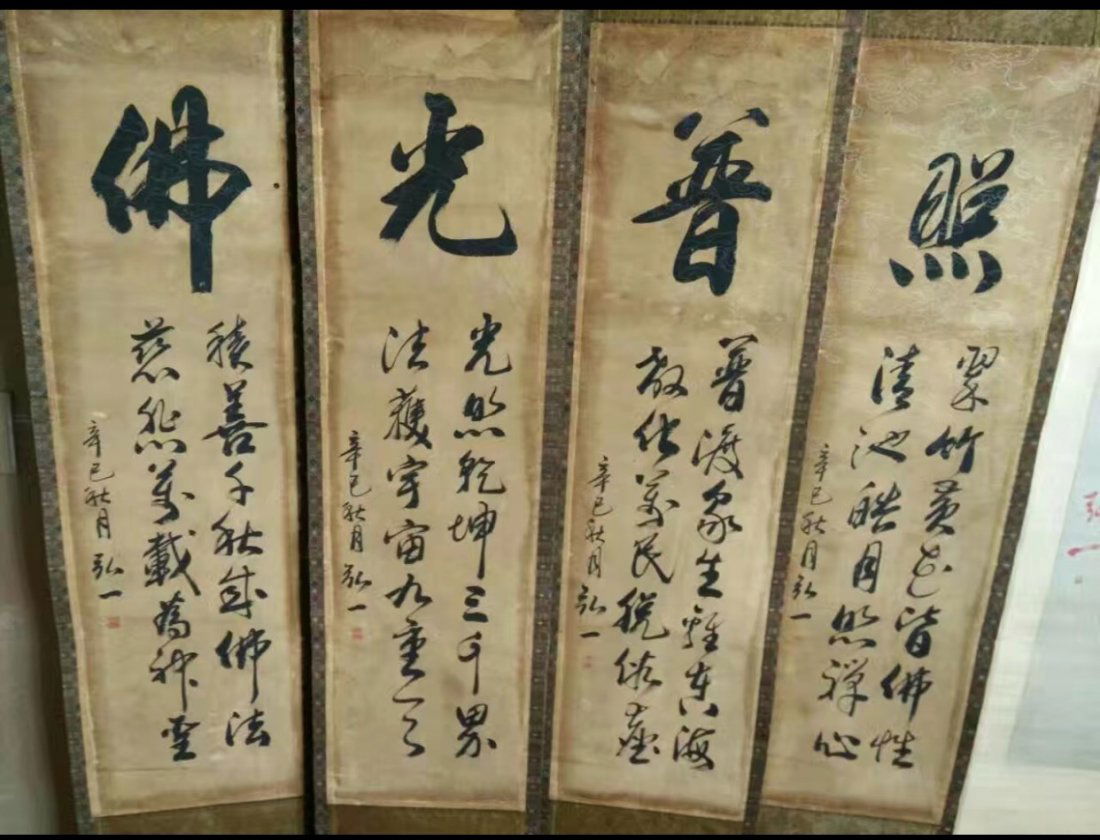 佛
積善千秋成佛法
慈悲萬載為神聖
辛巳秋月 弘一
光
光照乾坤三千界
法護宇宙九重天
辛巳秋月 弘一
普
普渡眾生離苦海
教化萬民脫俗塵
辛巳秋月 弘一
照
翠竹黃花皆佛性
清池皓月照禪心
辛巳秋月 弘一